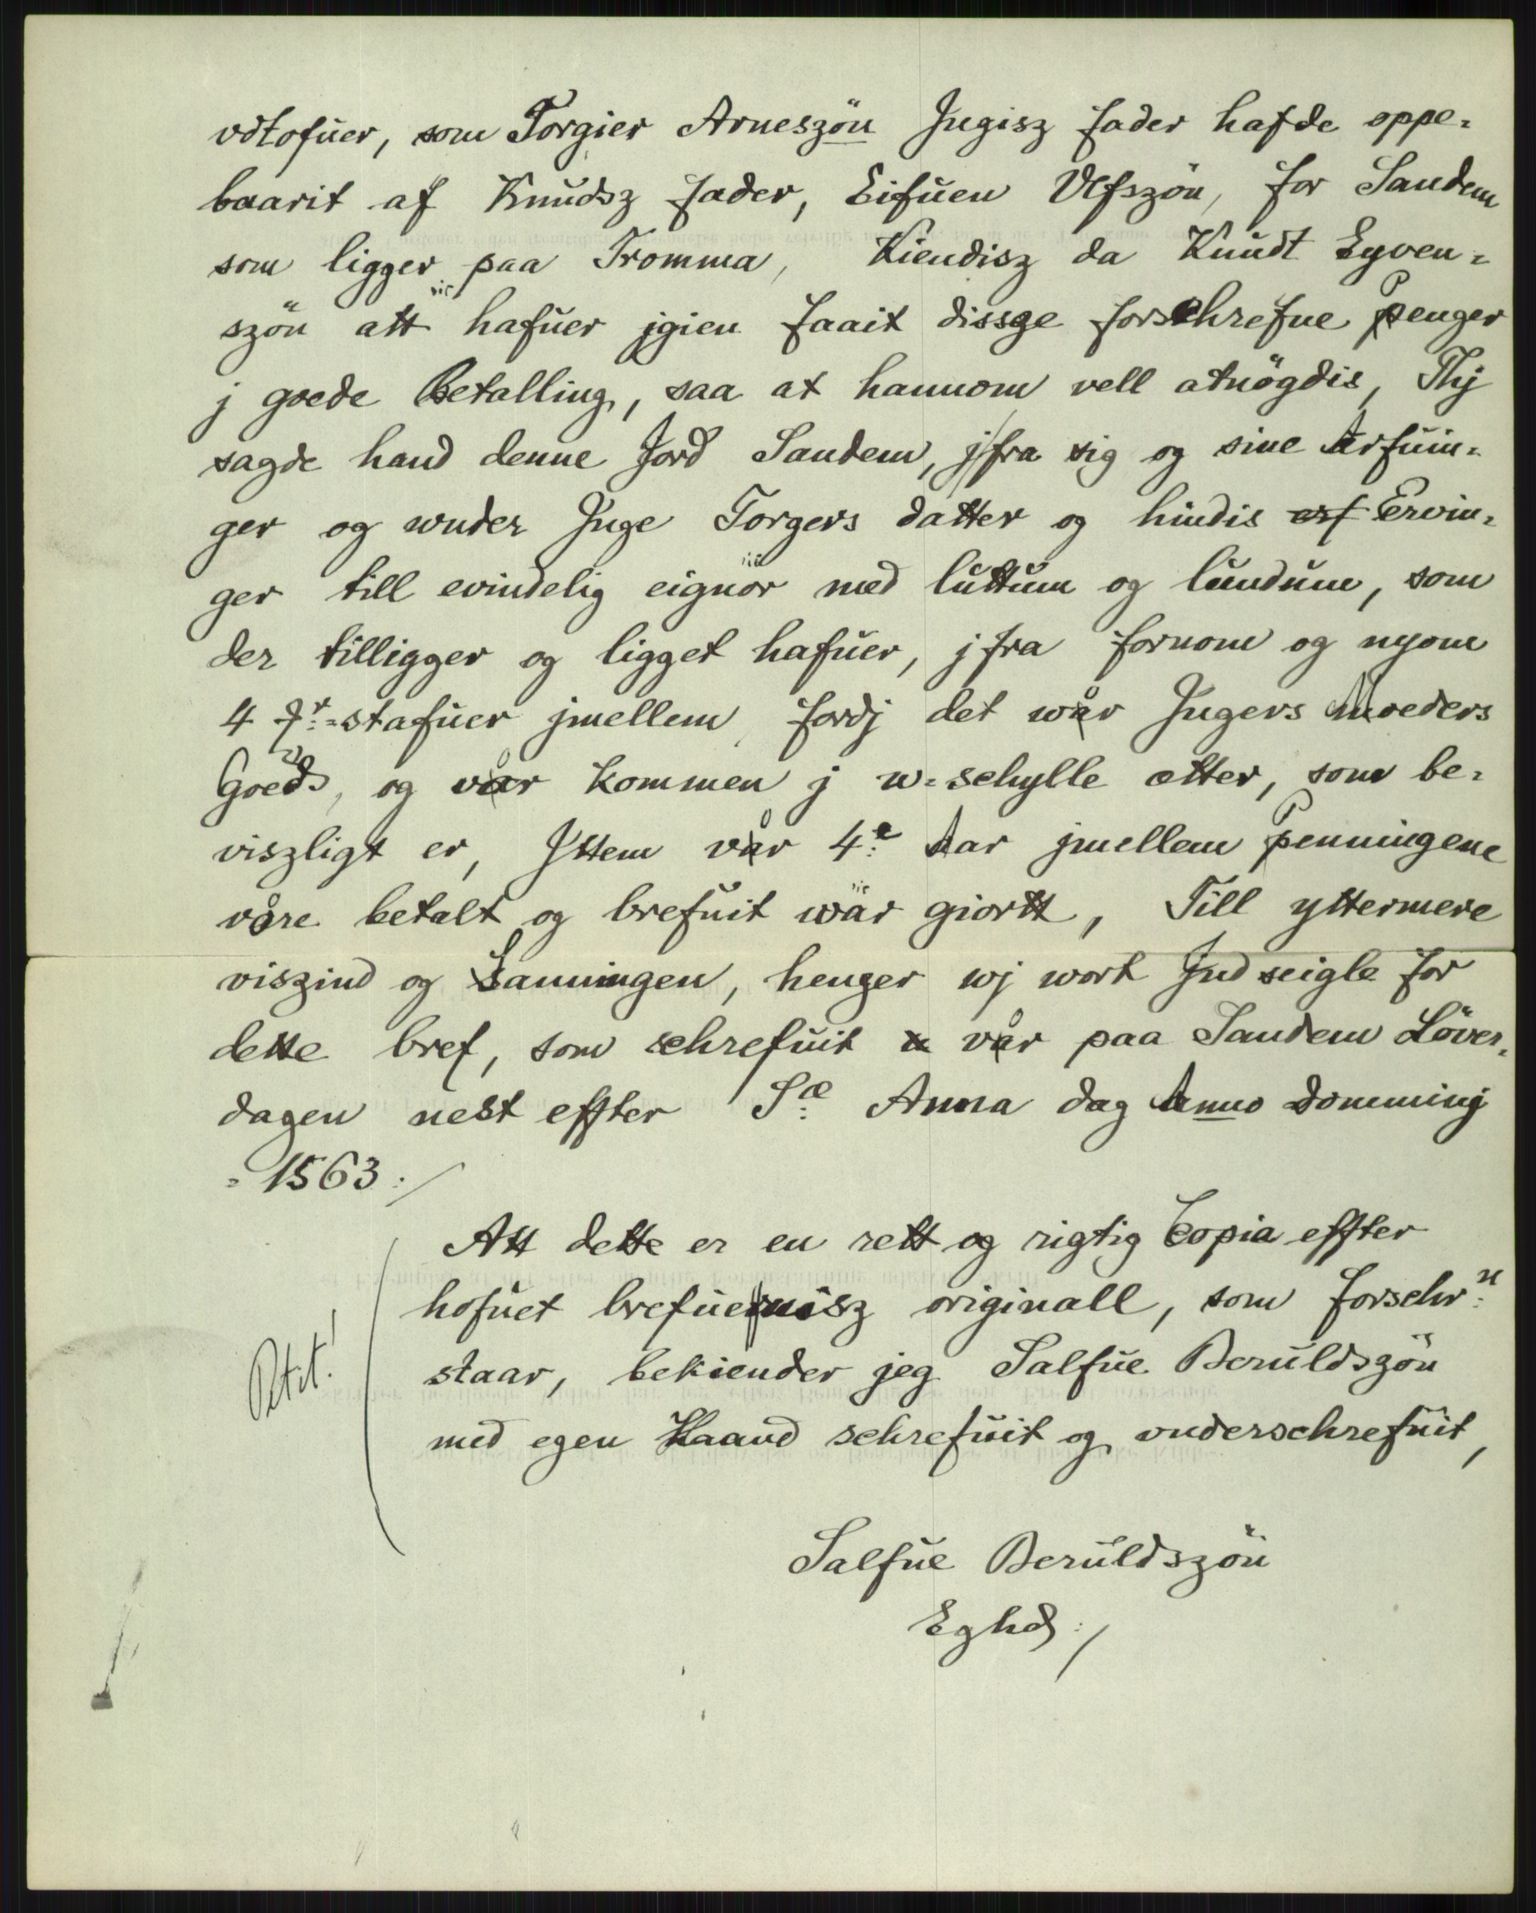 vdtofuer, som Torgier Arneszön Jngisz fader hafde oppe=
baarit af Knudsz fader, Eifuen Vlfszön, for Sandem
som ligger paa Tromma, Kiendisz da Knudt Eyven=
szön att hafuer jgien faait dissze forschrefne Penger
j goede Betalling, saa at hannom vell atnögdis, Thj
sagde hand denne Jord Sandem, j fra sig og sine Arfuin=
ger og wnder Jnge Torgers datter og hindis erf Ervin=
ger till evindelig eignör med luttum og lundum, som
der tilligger og ligget hafuer, j fra fornom og nyom
4 =stafuer jmellem, fordj det wår Jngers Moeders
Goeds, og vår kommen j w=schylle ætter, som be=
viszligt er, Jttem vår 4e: Aar jmellem Penningene
våre betalt og brefuit wär giortt, Till yttermere
viszind og Sanningen, henger wj wort Jndseigle for
dette bref, som schrefuit vår paa Sandem Löver=
dagen nest effter Sæ: Anna dag Anno Domminj
= 1563 :/
sic
Att dette er en rett og rigtig Copia effter
hofuet brefuernisz originall, som forschrn:
staar, bekiender jeg Salfue Beruldszön
med egen Haand schrefuit og vnderschrefuit,
Petit!
Salfue Beruldszön
Eghd :/